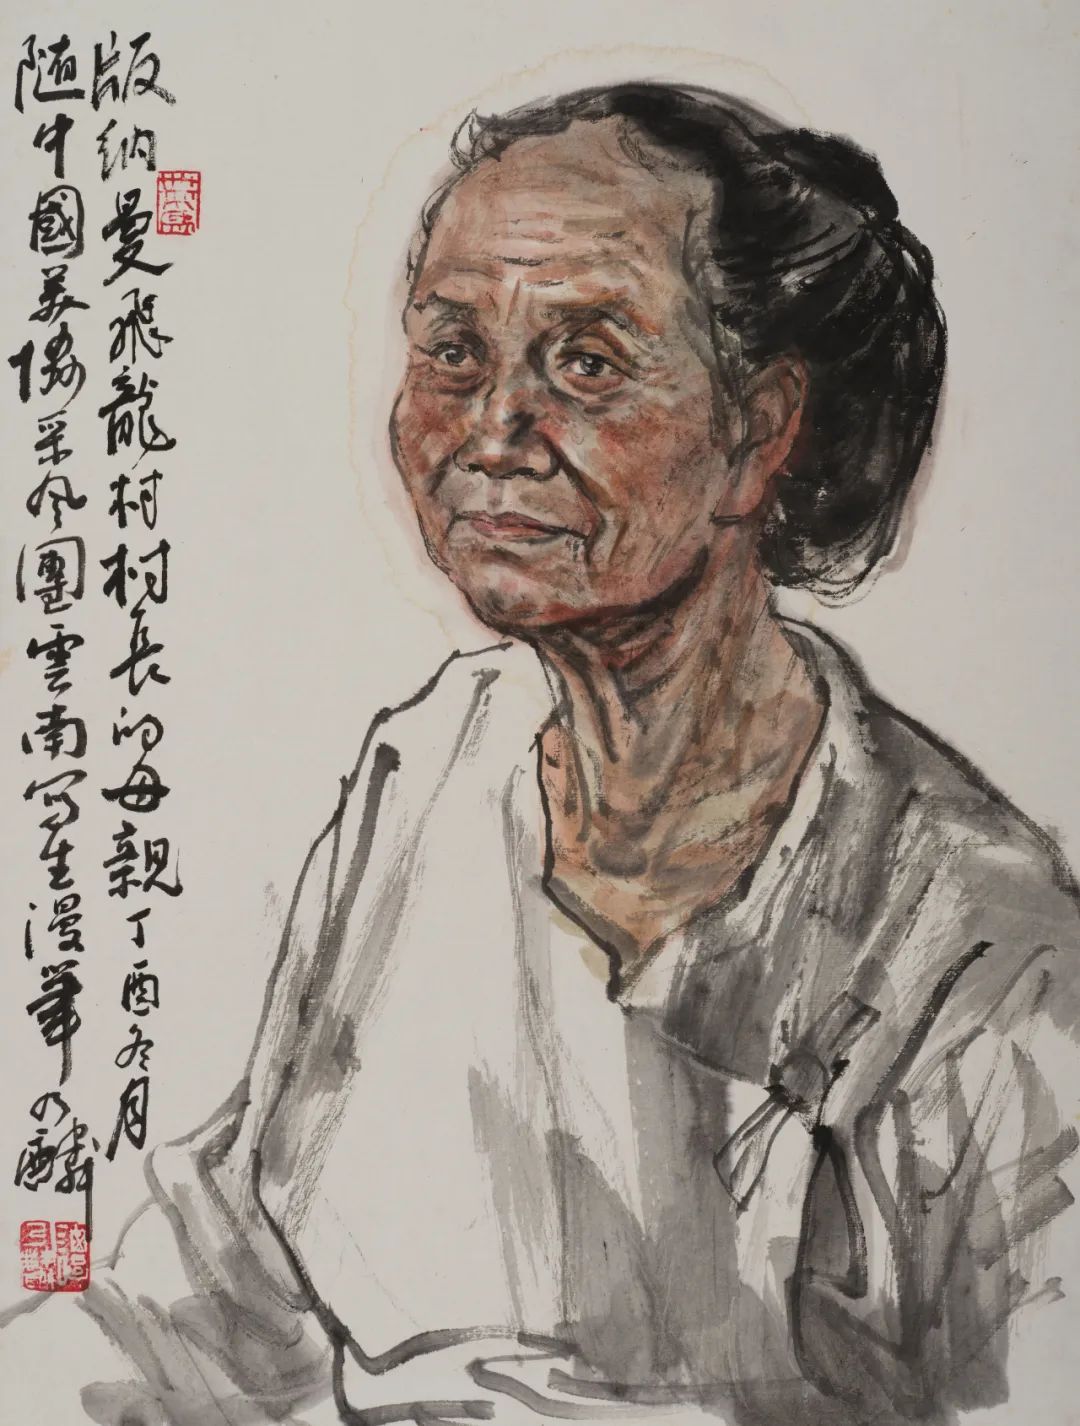 版纳曼飛龍村村長的母親丁酉冬月
随中國美協采风團雲南写生漫筆乃麟